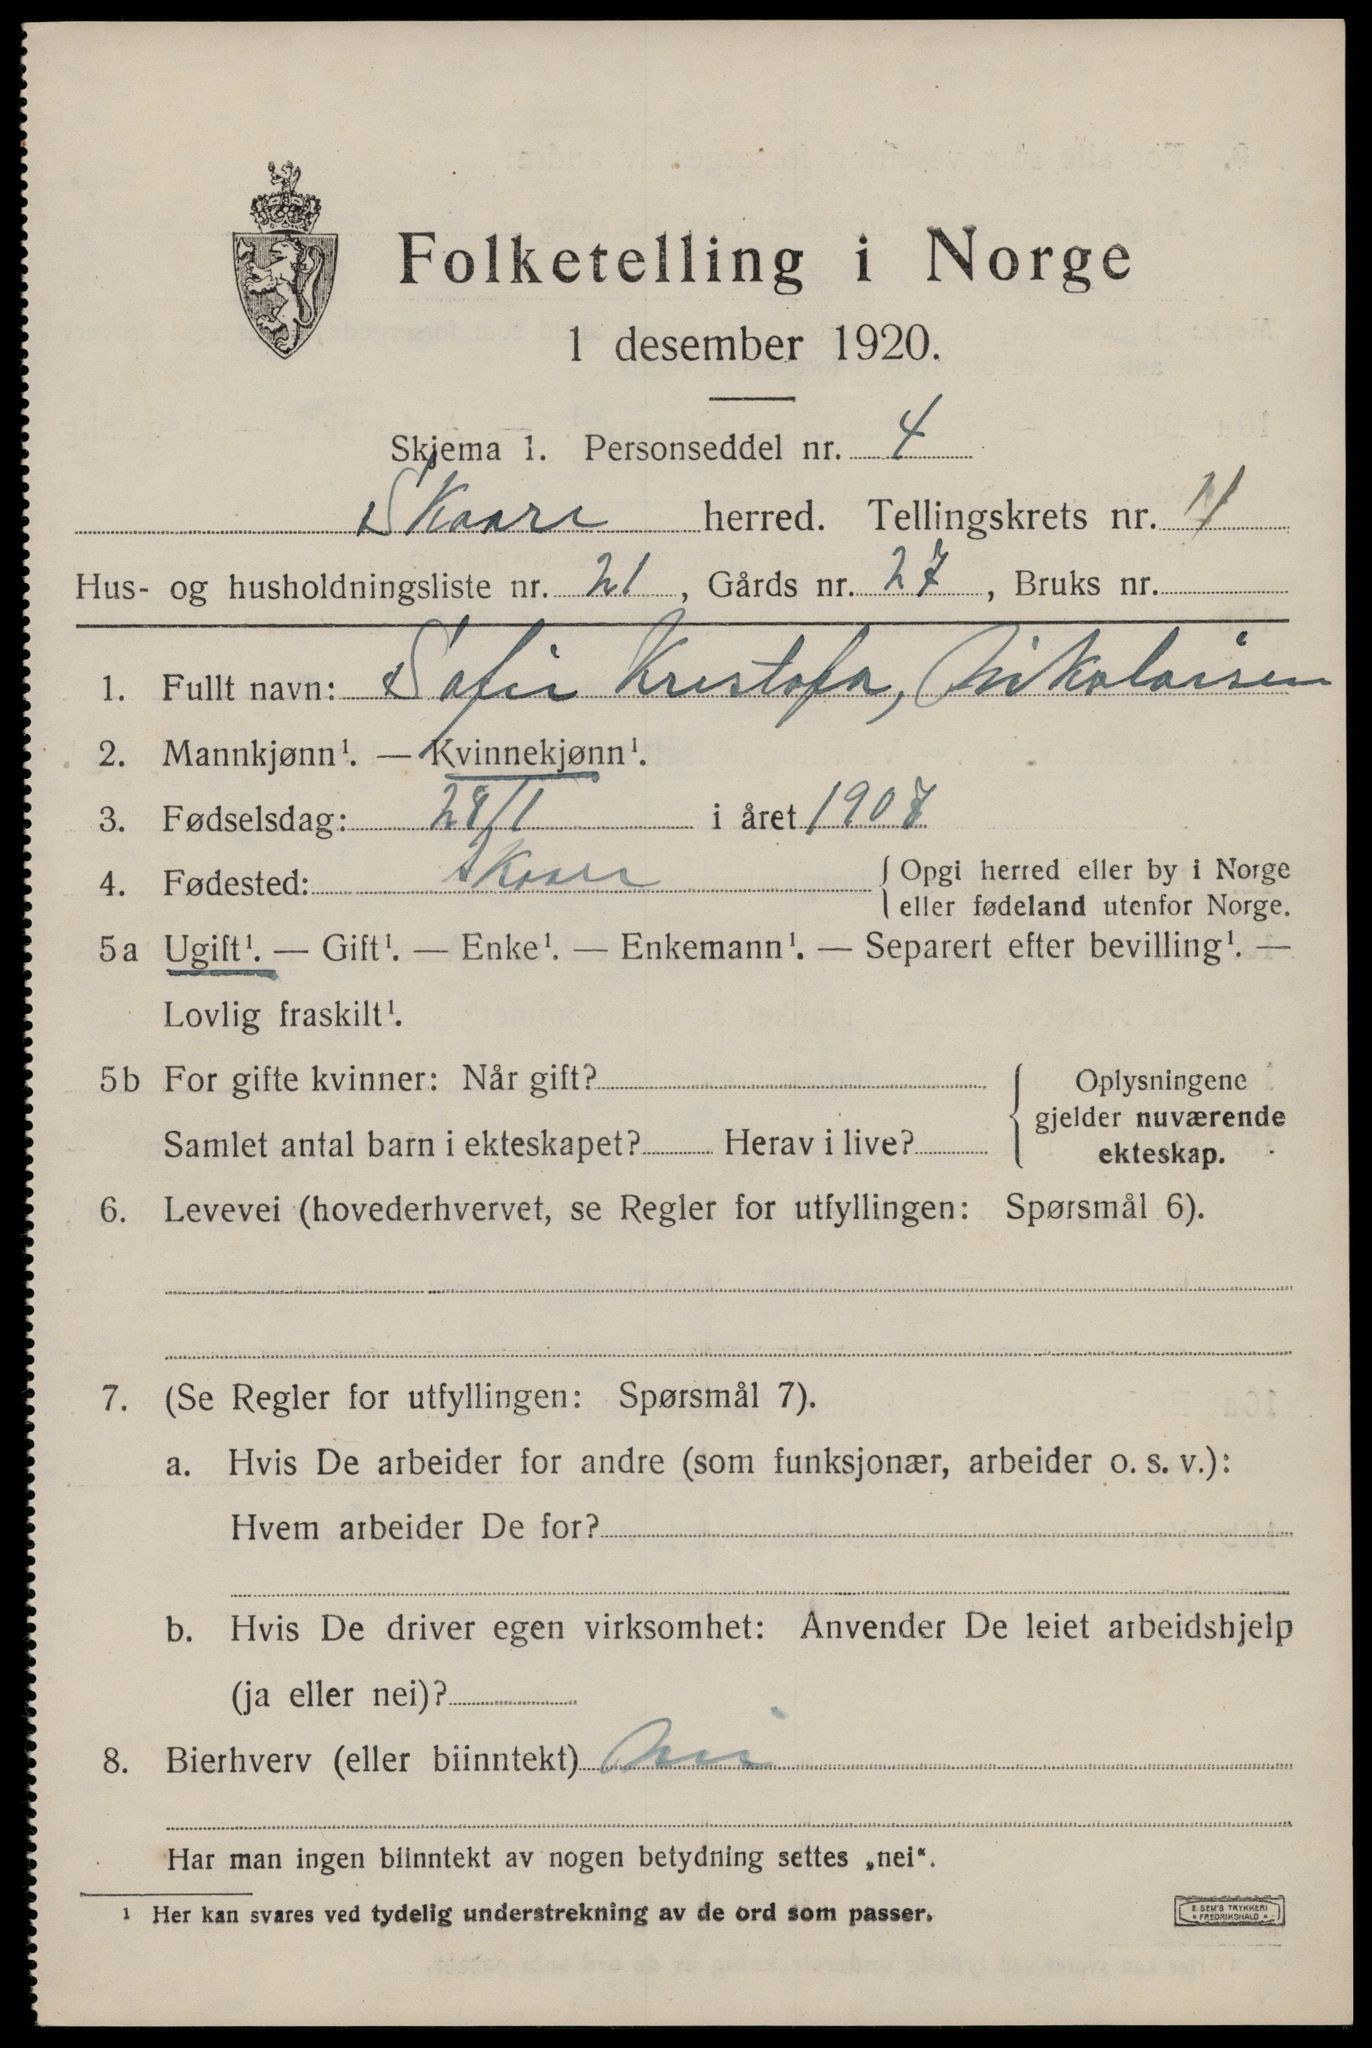 Folketelling i Norge
1 desember 1920.
Skjema 1. Personseddel nr. 4
Skaare herred. Tellingskrets nr. 4
Hus- og husholdningsliste nr. 21, Gårds nr. 27, Bruks nr.
1. Fullt navn: Sofie Kristofa, Nikolaisen
2. Mannkjønn¹. — Kvinnekjønn¹.
3. Fødselsdag: 28/1 i året 1907
4. Fødested: Skaare { Opgi herred eller by i Norge
eller fødeland utenfor Norge.
5a Ugift¹. — Gift¹. — Enke¹. — Enkemann¹. — Separert efter bevilling¹. —
Lovlig fraskilt¹.
5b For gifte kvinner: Når gift?
Samlet antal barn i ekteskapet? Herav i live?
{ Oplysningene
gjelder nuværende
ekteskap.
6. Levevei (hovederhvervet, se Regler for utfyllingen: Spørsmål 6).
7. (Se Regler for utfyllingen: Spørsmål 7).
a. Hvis De arbeider for andre (som funksjonær, arbeider o. s. v.):
Hvem arbeider De for?
b. Hvis De driver egen virksomhet: Anvender De leiet arbeidshjelp
(ja eller nei)?
8. Bierhverv (eller biinntekt) Nei
Har man ingen biinntekt av nogen betydning settes „nei“.
¹ Her kan svares ved tydelig understrekning av de ord som passer.
E. SEM'S TRYKKERI
FREDRIKSHALD